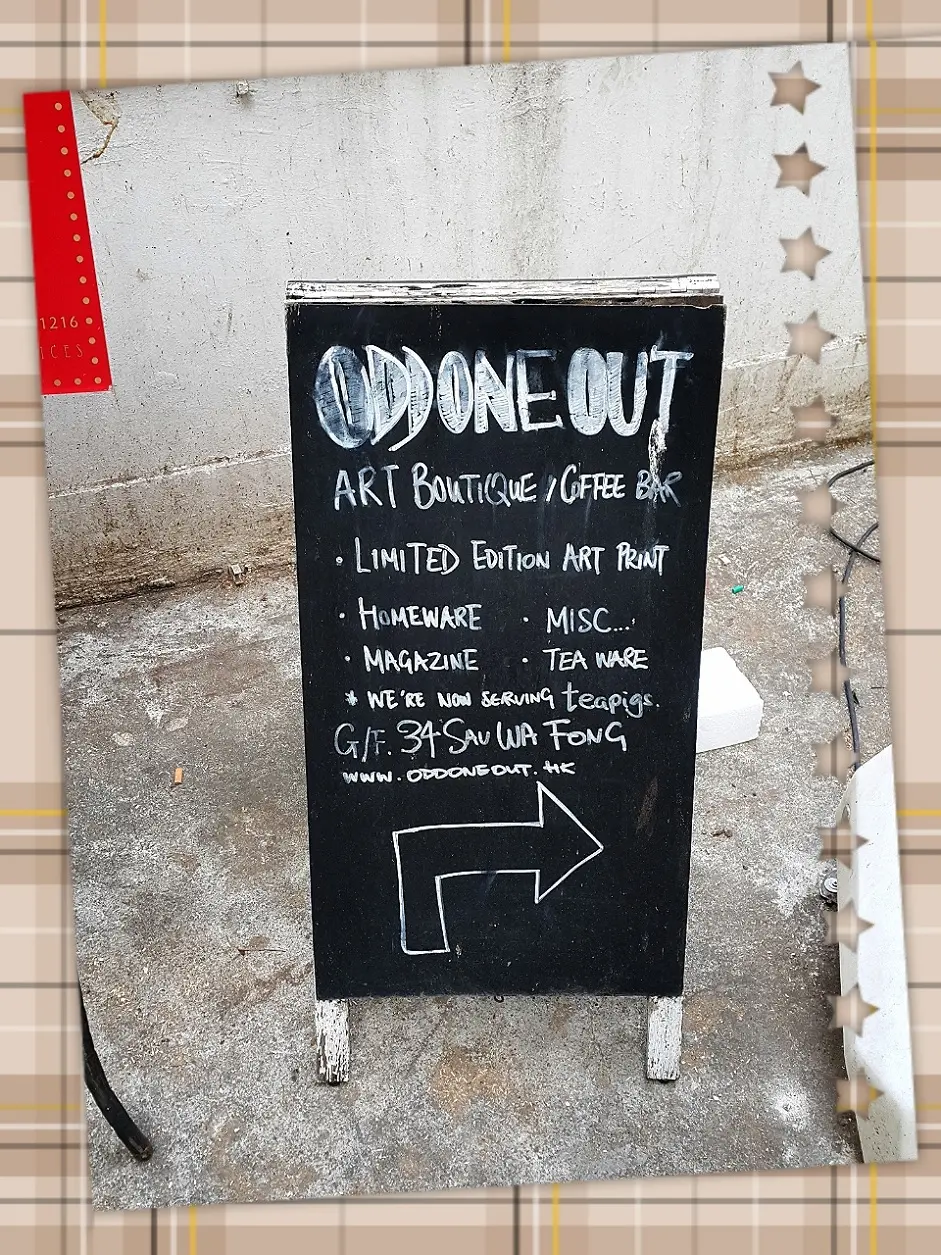 1216
ICES
ODD ONE OUT
ART BOUTIQUE / COFFEE BAR
· LIMITED EDITION ART PRINT
· HOMEWARE · MISC...
· MAGAZINE · TEA WARE
* WE'RE NOW SERVING teapigs.
G/F. 34 SAU WA FONG
WWW.ODDONEOUT.HK